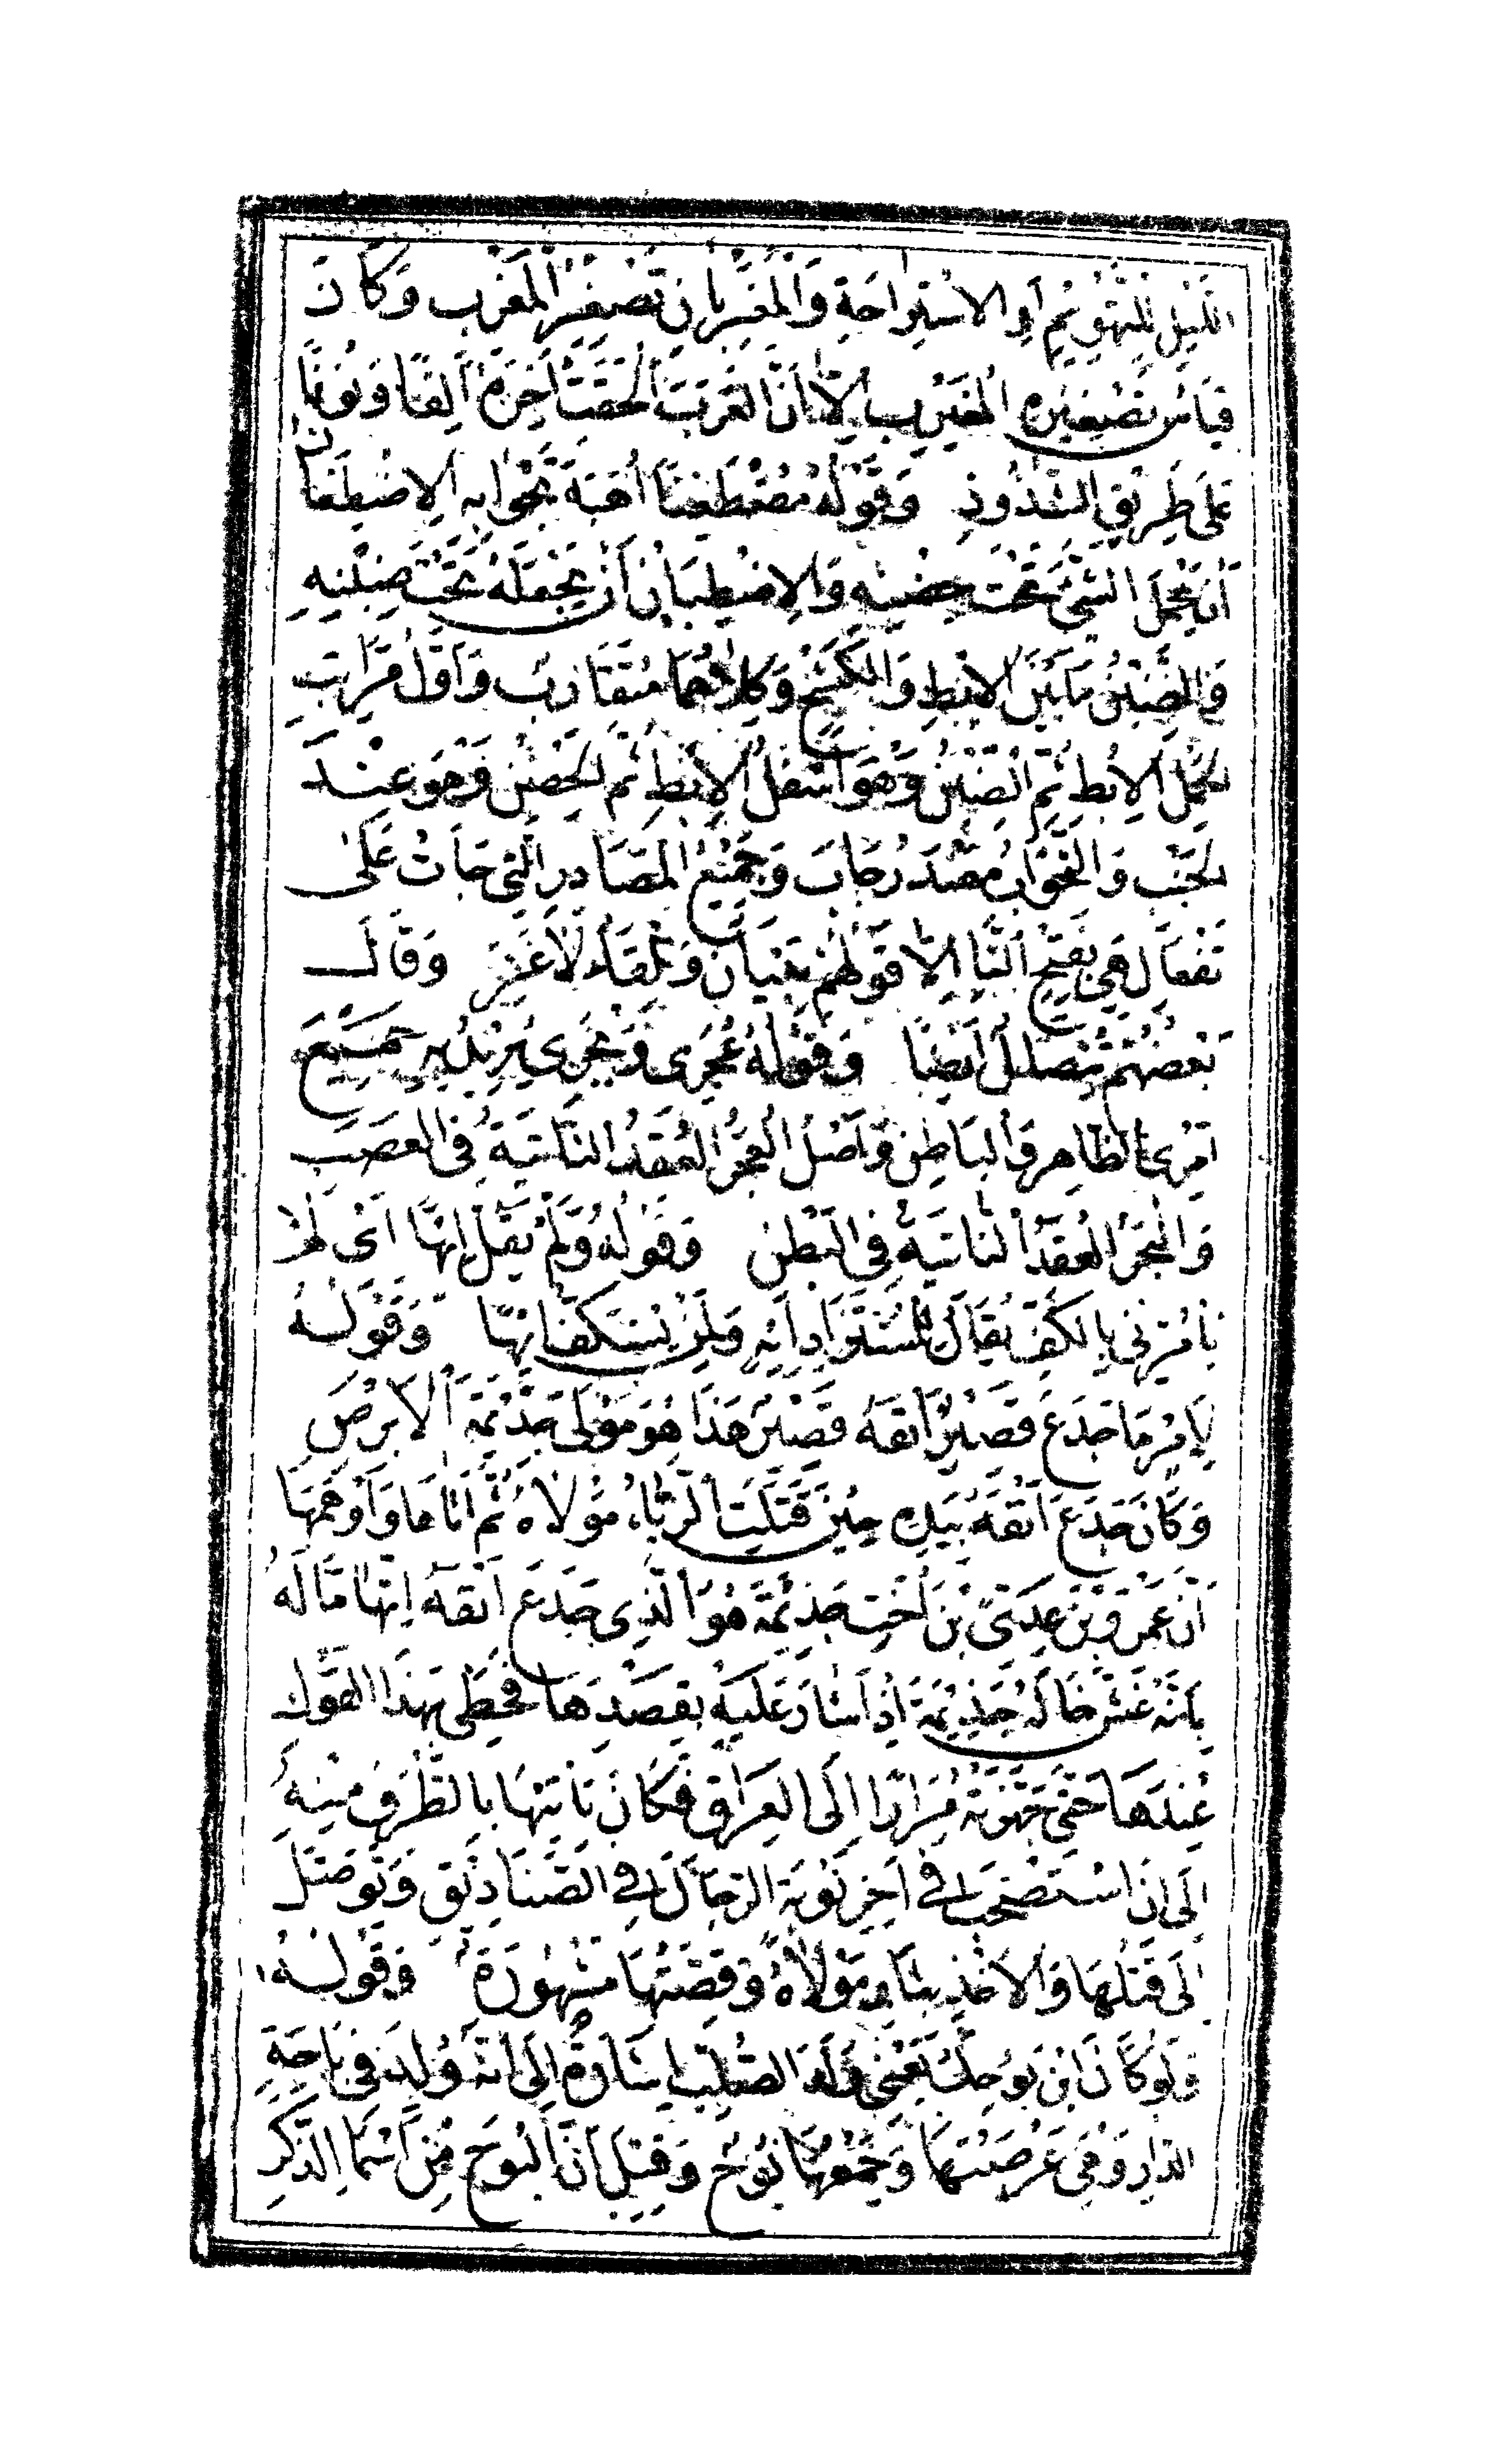 الليل للتهويم او الاستراحة والمغيربان تصغير المغرب وكان
قياس تصغيره المغيرب الا ان العرب الحقت اخره الفا ونونا
على طريق الشذوذ وقوله مضطغنا اهبة تجوابه الاضطغان
ان يحمل الشئ تحت حضنه والاضطبان ان يجعله تحت ضبنه
والضبن ما بين الابط والكشح وكلاهما متقارب واول مراتب
الحمل الابط ثم الضبن وهو اسفل الابط ثم الحضن وهو عند
الجنب والتجواب مصدر جاب وجميع المصادر التي جات على
تفعال هي بفتح التا الا قولهم تبيان وتلقاء لا غير وقال
بعضهم تنضال ايضا وقوله عجرى وبجرى يريد به جميع
امرى الظاهر والباطن واصل العجر العقد الناتية في العصب
والبجر العقد الناتية في البطن وقوله ولم يقل ايها اى لم
يامرنى بالكف يقال للمستزاد ايه ولمن يستكف ايها وقوله
لامر ما جدع قصير انفه قصير هذا هو مولى جذيمة الابرص
وكان جدع انفه بيده حين قتلت الزباء مولاه ثم اتاها واوهمها
ان عمرو بن عدى بن اخت جذيمة هو الذى جدع انفه اتهاما له
بانه غش خاله جذيمة اذ اشار عليه بقصدها فحظى بهذا القول
عندها حتى جهزته مرارا الى العراق فكان ياتيها بالطرف منه
الى ان استصحب في اخر نوبة الرجال في الصناديق وتوصل
الى قتلها والاخذ بثار مولاه وقصتها مشهورة وقوله
ولو كان ابن بوحك يعنى ولد الصلب اشارة الى انه ولد في باحة
الدار وهي عرصتها وجمعها بوح وقيل ان البوح من اسما الذكر